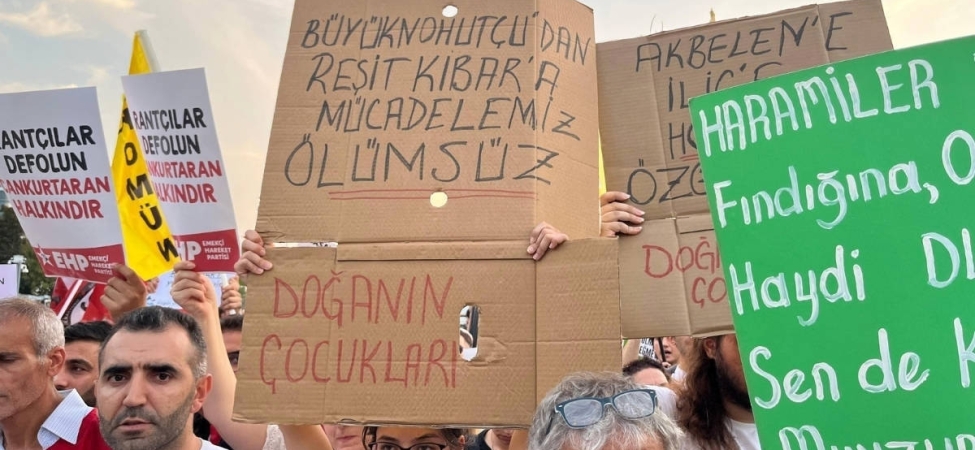 RANTÇILAR
DEFOLUN
HALKINDIR
EHP EMEKÇİ HAREKET PARTİSİ
RANTÇILAR
DEFOLUN
HALKINDIR
EHP EMEKÇİ HAREKET PARTİSİ
BÜYÜKNOHUTÇU'DAN
REŞİT KİBAR'A
MÜCADELEMİZ
ÖLÜMSÜZ
DOĞANIN
ÇOCUKLARI
AKBELEN'E
İLİÇ'E
HARAMİLER
Fındığına,
Haydi
Sen de